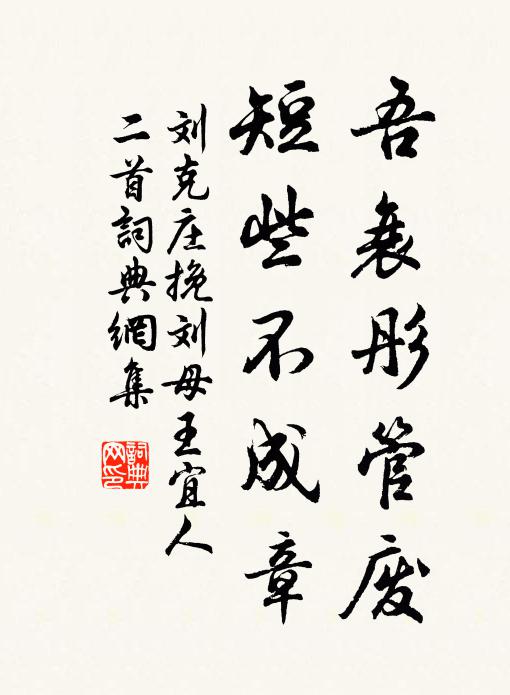 吾衰彤管废
短些不成章
刘克庄挽刘母王宜人
二首詞典網集
詞典网印